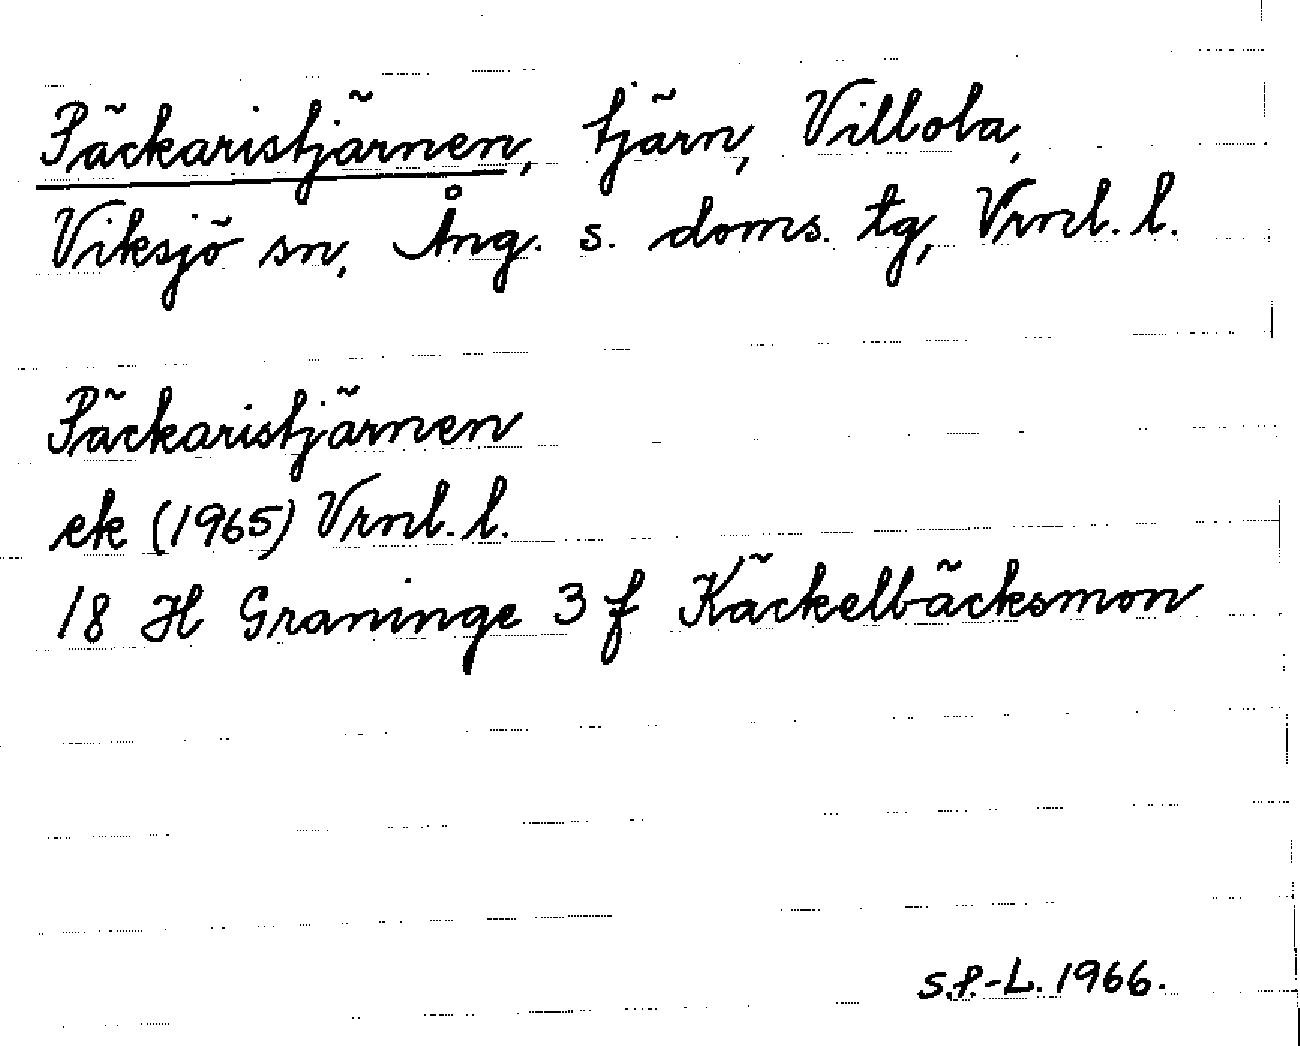 Päckaristjärnen, tjärn, Villola,
Viksjö sn, Ång. s. doms. tg, Vrnl. l.
Päckaristjärnen
ek (1965) Vrnl. l.
18 H Graninge 3 f Käckelbäcksmon
S.P.-L. 1966.